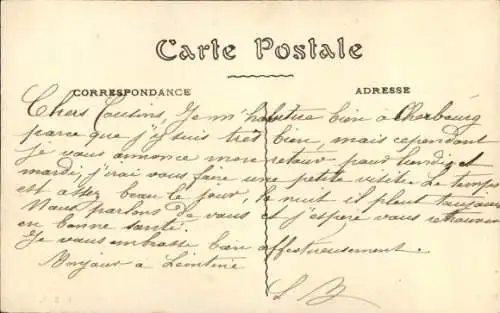 Carte Postale
CORRESPONDANCE
ADRESSE
Chers Cousins, Je m'habitue bien à Cherbourg
parce que j'y suis très bien, mais cependant
je vous annonce mon retour pour lundi et
mardi, j'irai vous faire une petite visite. Le temps
est assez beau le jour, la nuit il pleut toujours
Nous parlons de vous et j'espère vous retrouver
en bonne santé.
Je vous embrasse bien affectueusement.
Bonjour à Léontine